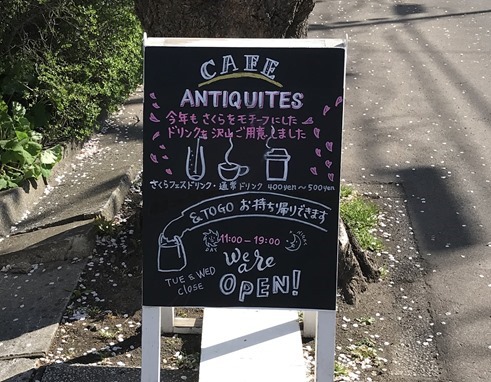 CAFE
ANTIQUITES
今年もさくらをモチーフにした
ドリンクを沢山ご用意しました
さくらフェスドリンク・通常ドリンク 400yen〜500yen
&TOGO お持ち帰りできます
11:00 - 19:00
DAY
We are
OPEN!
TUE & WED
close